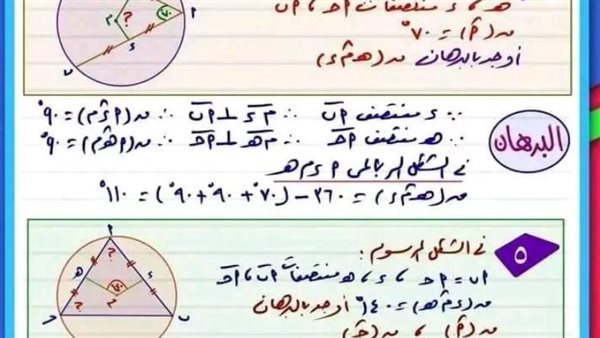 هـ ، ء منتصفات أحـ ، أب
ن(أ) = ٧٠°
أوجد بالبرهان ن(هـ م ء)
؟
م
٧٠°
أ
ء
ب
البرهان
∵ ء منتصف أب ∴ م ء ⊥ أب ∴ ن(أ ء م) = ٩٠°
∵ هـ منتصف أحـ ∴ م هـ ⊥ أحـ ∴ ن(أ هـ م) = ٩٠°
في الشكل الرباعي أ ء م هـ
ن(هـ م ء) = ٣٦٠ − (٧٠° + ٩٠° + ٩٠°) = ١١٠°
٥
في الشكل المرسوم :
أب = أحـ ، ء ، هـ منتصفات أب ، أحـ
ن(ء م هـ) = ١٤٠° أوجد بالبرهان
ن(أ) ، ن(حـ)
أ
؟
هـ
ء
١٤٠
؟
م
حـ
ب